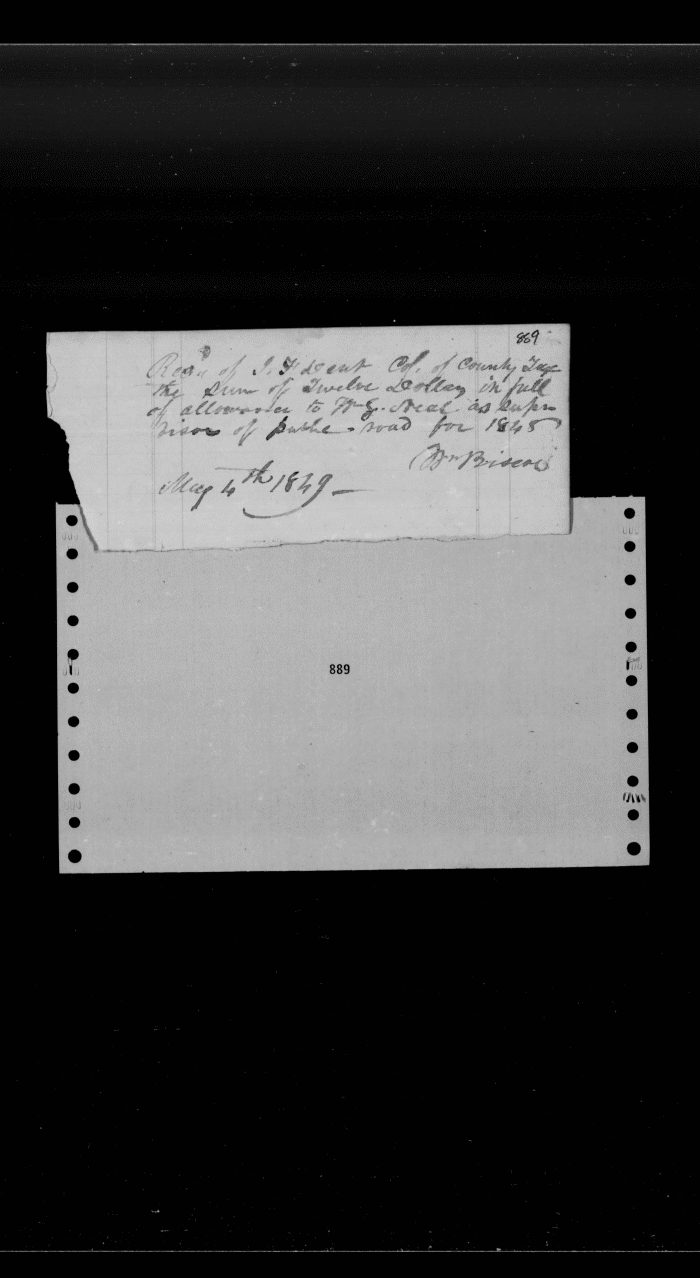 889
Recd of J. F. Dent Col. of County Tax
the Sum of Twelve Dollars in full
of allowance to W. G. Neal as supr
visor of public road for 1845
Wm Briscoe
May 4th 1849
889